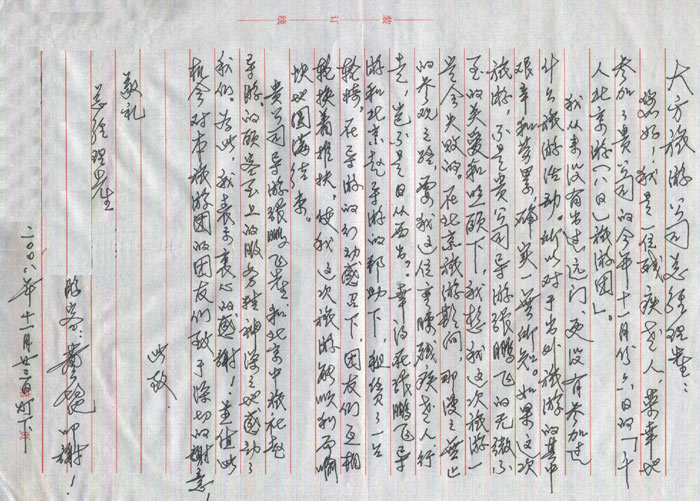 大方旅游公司总经理先生:
您好,我是一位残疾老人,荣幸地
参加了贵公司的今年十一月廿六日的「千
人北京游(八日)旅游团」。
我从来没有出过远门,更没有参加过
什么旅游活动。所以对于出外旅游的其中
艰辛和劳累,确实一无所知。如果这次
旅游,不是贵公司导游张鹏飞的无微不
至的关爱和照顾下,我想我这次旅游一
定会失败的。在北京旅游期间,那漫长
的参观之路,要我这位重腿残疾老人行
走,岂不是日从西出。幸得在张鹏飞导
游和北京赵导游的帮助下,租赁了一台
轮椅,在导游的行动感召下,团友们互相
轮换着推扶,使我这次旅游能顺利而
愉快地圆满结束。
贵公司导游张鹏飞先生和北京中旅社赵
导游的顾客至上的服务精神深深地感动了
我们。为此,我表示衷心的感谢!并值此
机会对本旅游团的团友们致于深切的谢意!
此致
敬礼
总经理先生
游客: 叩谢!
二00八年十二月廿二日灯下
装订线